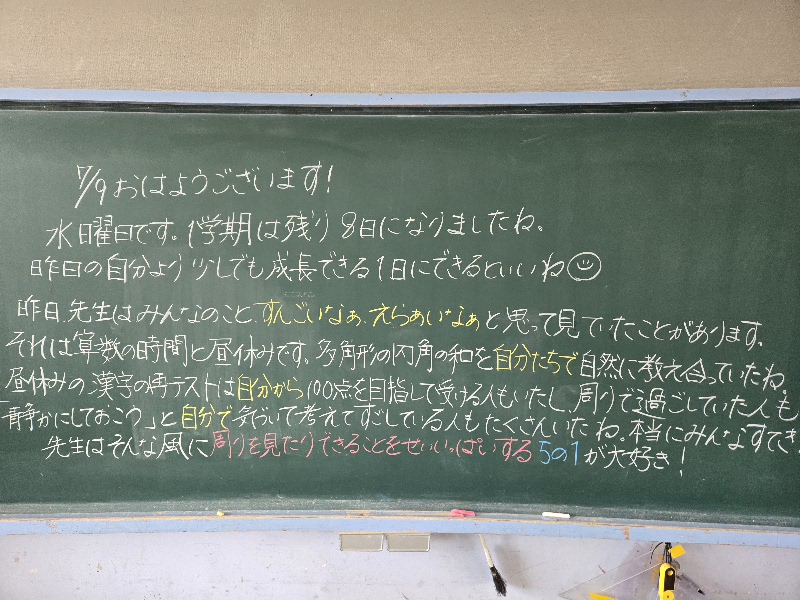 7/9 おはようございます!
水曜日です。1学期は残り8日になりましたね。
昨日の自分より少しでも成長できる1日にできるといいね☺
昨日、先生はみんなのこと、すんごいなぁ、えらぁいなぁと思って見ていたことがあります。
それは算数の時間と昼休みです。多角形の内角の和を自分たちで自然に教え合っていたね。
昼休みの漢字の再テストは自分から100点を目指して受ける人もいたし、周りで過ごしていた人も
「静かにしておこう」と自分で気づいて考えてすごしている人もたくさんいたね。本当にみんなすてき!
先生はそんな風に周りを見たりできることをせいいっぱいする5の1が大好き!